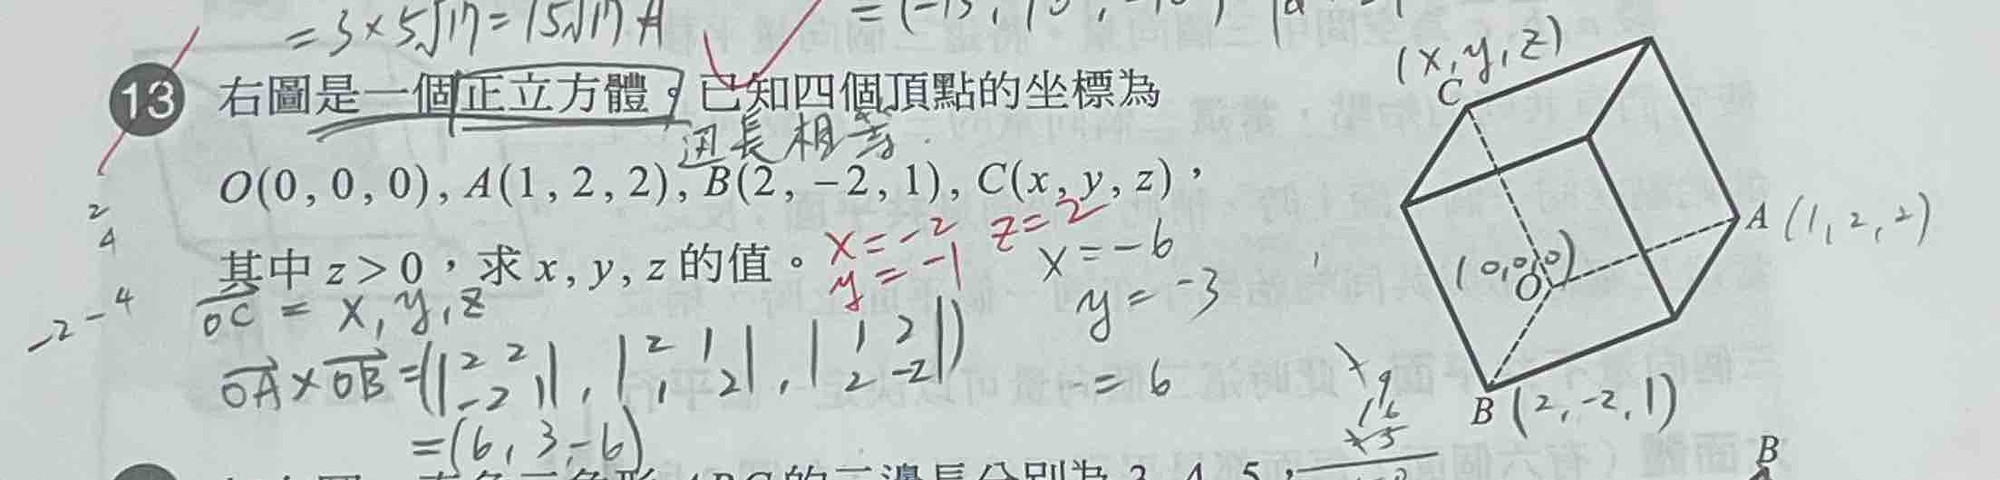 = 3 × 5√17 = 15√17 A
13 右圖是一個正立方體。已知四個頂點的坐標為
邊長相等.
O(0, 0, 0), A(1, 2, 2), B(2, −2, 1), C(x, y, z),
其中 z > 0,求 x, y, z 的值。
x = -2 z = 2
y = -1
x = -6
y = -3
= 6
OC = x, y, z
OA × OB = (|2 2 -2 1|, |2 1 1 2|, |1 2 2 -2|)
= (6, 3, -6)
2
4
-2 - 4
(x, y, z)
C
A (1, 2, 2)
(0,0,0)
O
B (2, -2, 1)
B